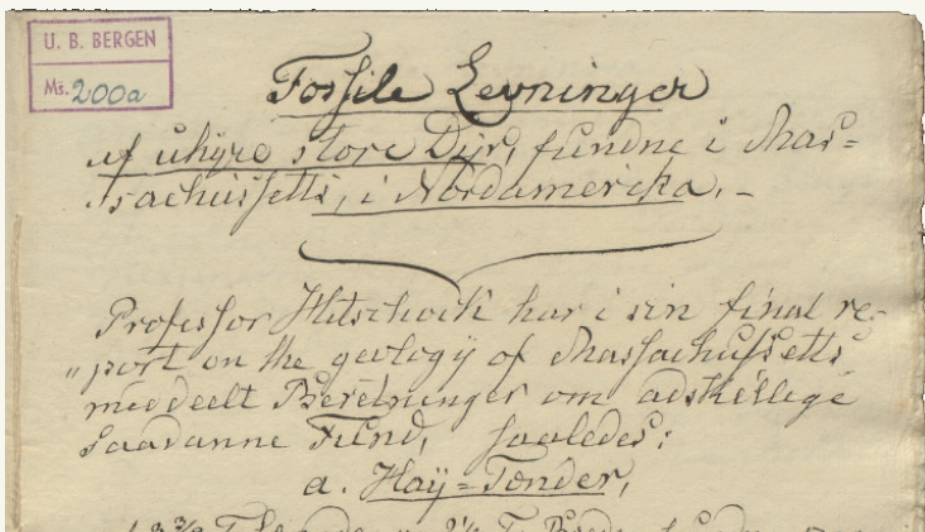 U. B. BERGEN
Ms. 200a
Fossile Levninger
af uhyre store Dyr, fundne i Mas=
sachussetts, i Nordamerika. -
Professor Hitschok har i sin final re-
"port on the geologÿ of Massachussetts"
meddeelt Beretninger om adskellege
saadanne Fund, saaledes:
a. Haÿ=Tønder,